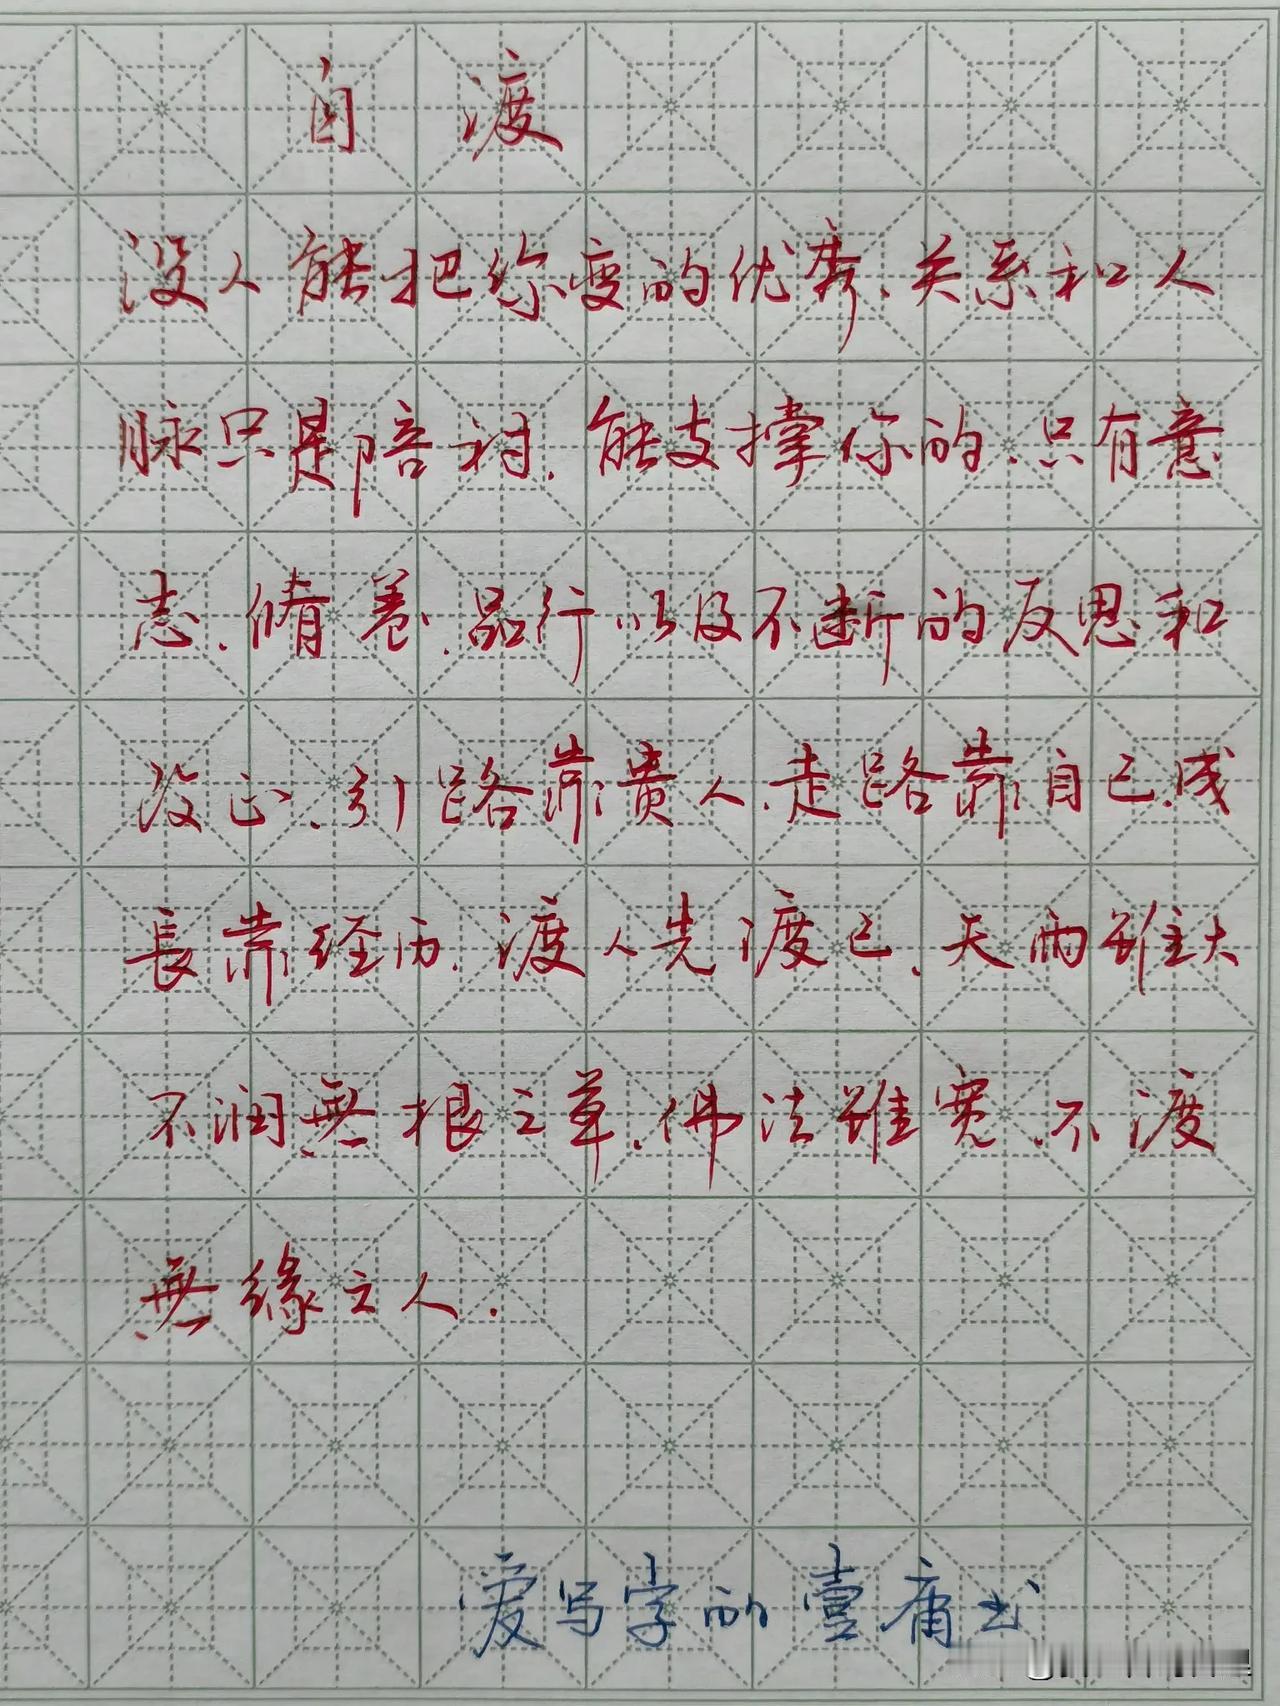 自渡
没人能把你变的优秀.关系和人
脉只是陪衬.能支撑你的.只有意
志.脩养.品行以及不断的反思和
改正.引路靠贵人.走路靠自己.成
長靠经历.渡人先渡己.天雨雖大
不润無根之草.佛法雖宽.不渡
無緣之人.
爱写字的壹痡书